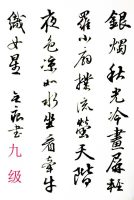 銀燭秋光冷畫屏輕
羅小扇撲流螢天階
夜色涼如水坐看牽牛
織女星
書
九级